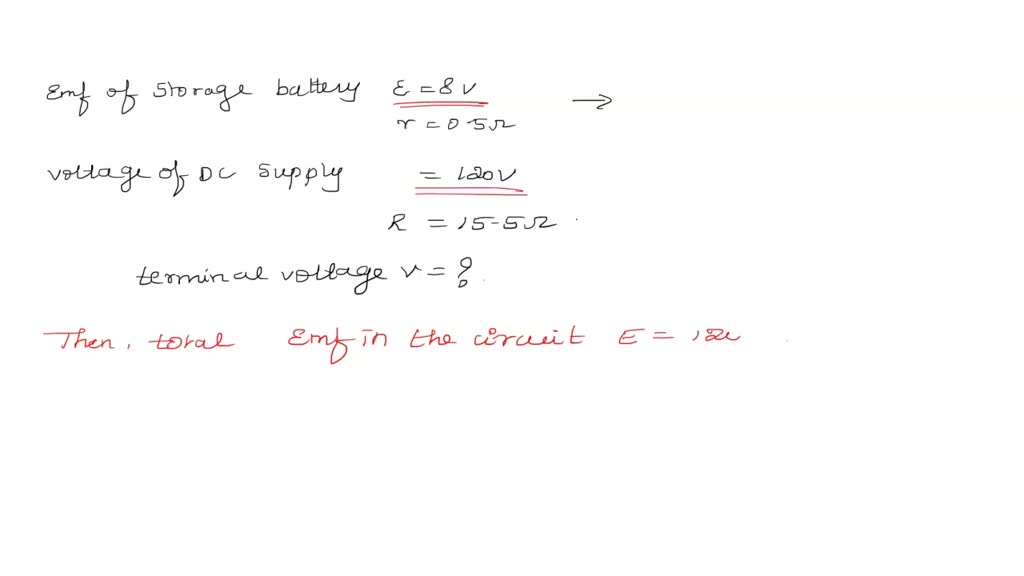 Emf of Storage battery ε = 8 V →
r = 0.5Ω
voltage of DC supply = 120V
R = 15.5Ω
terminal voltage v = ?
Then, total Emf in the circuit E = 120